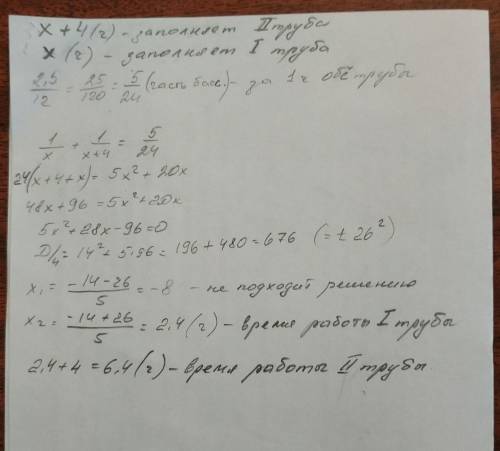 x + 4 (г) - заполняет II труба
x (г) - заполняет I труба
2,5/12 = 25/120 = 5/24 (часть басс.) - за 1 ч обе трубы
1/x + 1/x+4 = 5/24
24(x+4+x) = 5x² + 20x
48x + 96 = 5x² + 20x
5x² + 28x - 96 = 0
D/4 = 14² + 5·96 = 196 + 480 = 676 (= ± 26²)
x₁ = -14-26/5 = -8 - не подходит решению
x₂ = -14+26/5 = 2,4 (г) - время работы I трубы
2,4 + 4 = 6,4 (г) - время работы II трубы